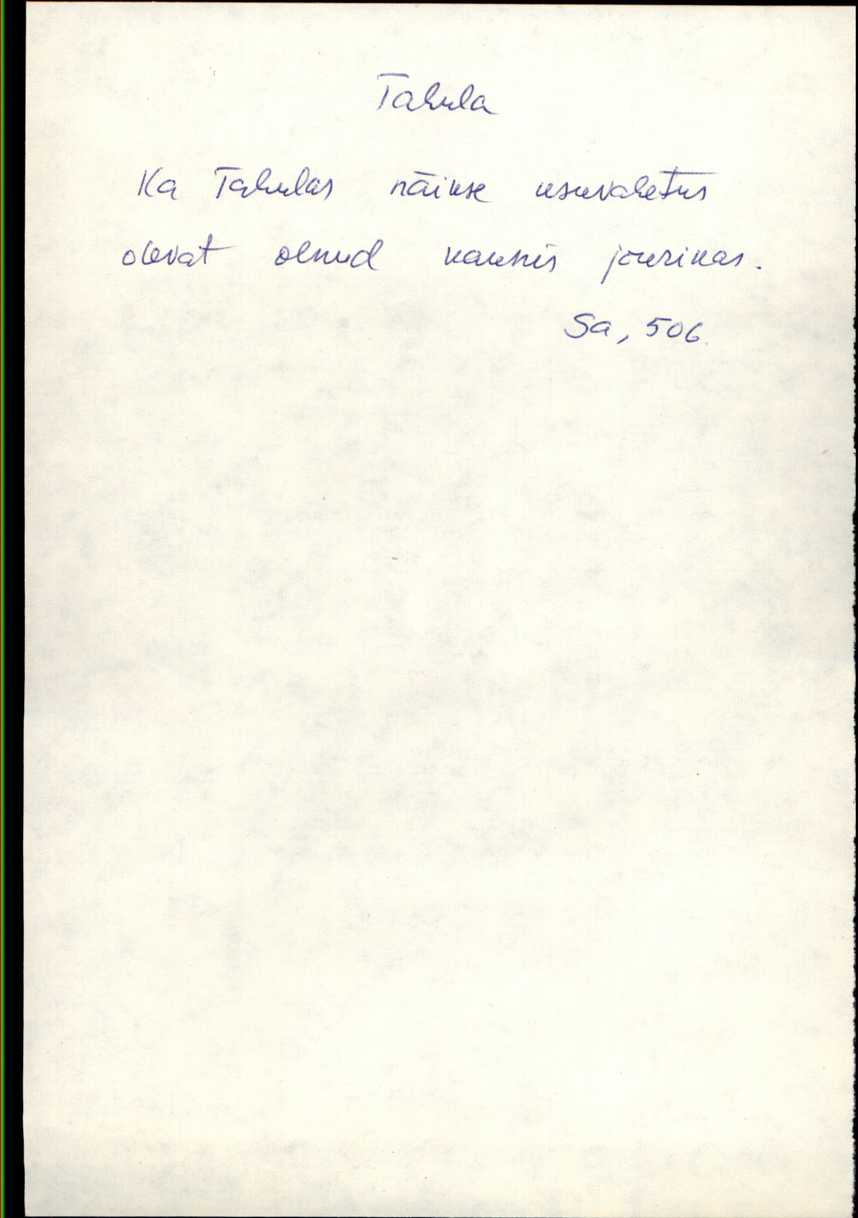 Tahula
Ka Tahulas näikse usuvahetus
olevat olnud kaunis jõurikas.
Sa, 506.